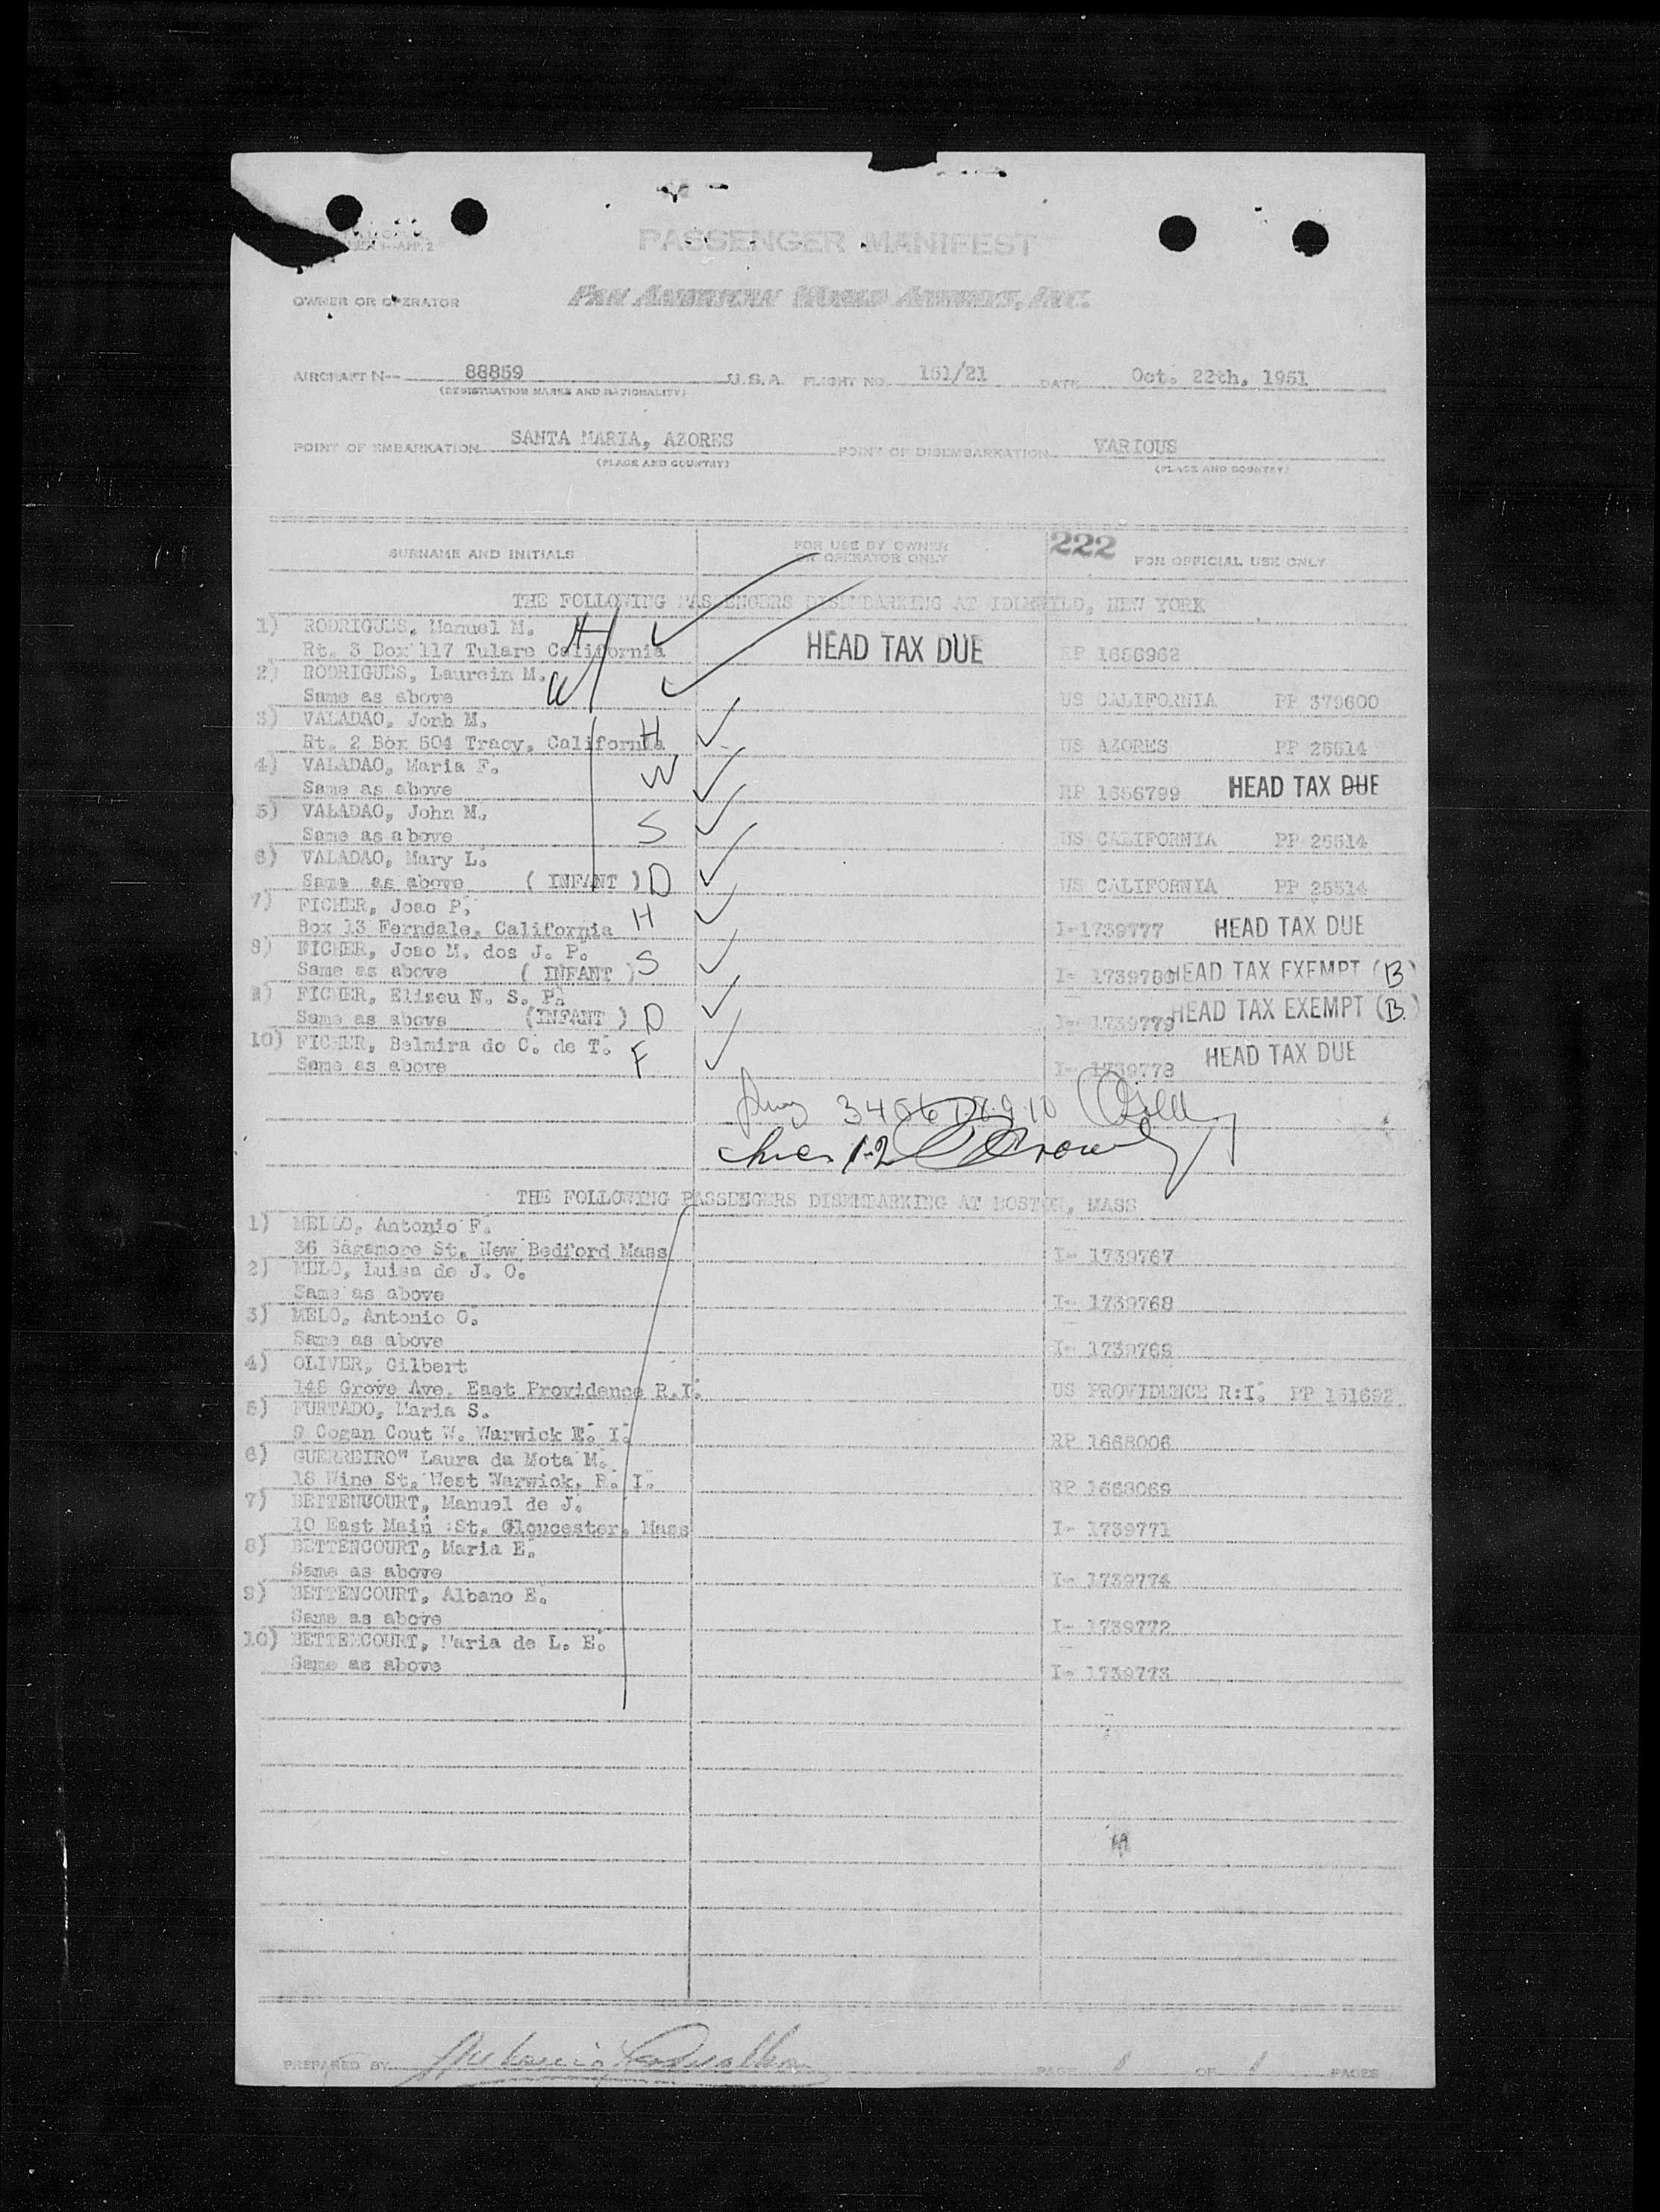 PASSENGER MANIFEST
OWNER OR OPERATOR PAN AMERICAN WORLD AIRWAYS, INC.
AIRCRAFT N-- 88859 U.S.A. FLIGHT NO. 151/21 DATE Oct. 22th, 1951
(REGISTRATION MARKS AND NATIONALITY)
POINT OF EMBARKATION SANTA MARIA, AZORES POINT OF DISEMBARKATION VARIOUS
(PLACE AND COUNTRY) (PLACE AND COUNTRY)
SURNAME AND INITIALS FOR USE BY OWNER OR OPERATOR ONLY 222 FOR OFFICIAL USE ONLY
THE FOLLOWING PASSENGERS DISEMBARKING AT IDLEWILD, NEW YORK
1) RODRIGUES, Manuel M. H
Rt. 3 Box 117 Tulare California HEAD TAX DUE RP 1656962
2) RODRIGUES, Laurein M. W
Same as above US CALIFORNIA PP 379600
3) VALADAO, Jonh M. H
Rt. 2 Box 504 Tracy, California US AZORES PP 25514
4) VALADAO, Maria F. W
Same as above RP 1656799 HEAD TAX DUE
5) VALADAO, John M. S
Same as above US CALIFORNIA PP 25514
6) VALADAO, Mary L.
Same as above ( INFANT ) D US CALIFORNIA PP 25514
7) FICHER, Joao P. H
Box 13 Ferndale, California I-1739777 HEAD TAX DUE
8) FICHER, Joao M. dos J. P.
Same as above ( INFANT ) S I- 1739780 HEAD TAX EXEMPT (B)
9) FICHER, Eliseu N. S. P.
Same as above (INFANT ) D I- 1739779 HEAD TAX EXEMPT (B.)
10) FICHER, Belmira do C. de T. F
Same as above I- 1739778 HEAD TAX DUE
3 4 5 6 7.8.9.10
1-2
THE FOLLOWING PASSENGERS DISEMBARKING AT BOSTON, MASS
1) MELLO, Antonio F.
36 Sagamore St. New Bedford Mass I- 1739767
2) MELO, Luisa de J. O.
Same as above I- 1739768
3) MELO, Antonio O.
Same as above I- 1739769
4) OLIVER, Gilbert
148 Grove Ave. East Providence R.I. US PROVIDENCE R:I. PP 151692
5) FURTADO, Maria S.
9 Cogan Cout W. Warwick R. I. RP 1668006
6) GUERREIRO" Laura da Mota M.
18 Wine St. West Warwick, R. I. RP 1668069
7) BETTENCOURT, Manuel de J.
10 East Main St. Gloucester, Mass I- 1739771
8) BETTENCOURT, Maria E.
Same as above I- 1739774
9) BETTENCOURT, Albano E.
Same as above I- 1739772
10) BETTENCOURT, Maria de L. E.
Same as above I- 1739773
PREPARED BY PAGE 1 OF 1 PAGES